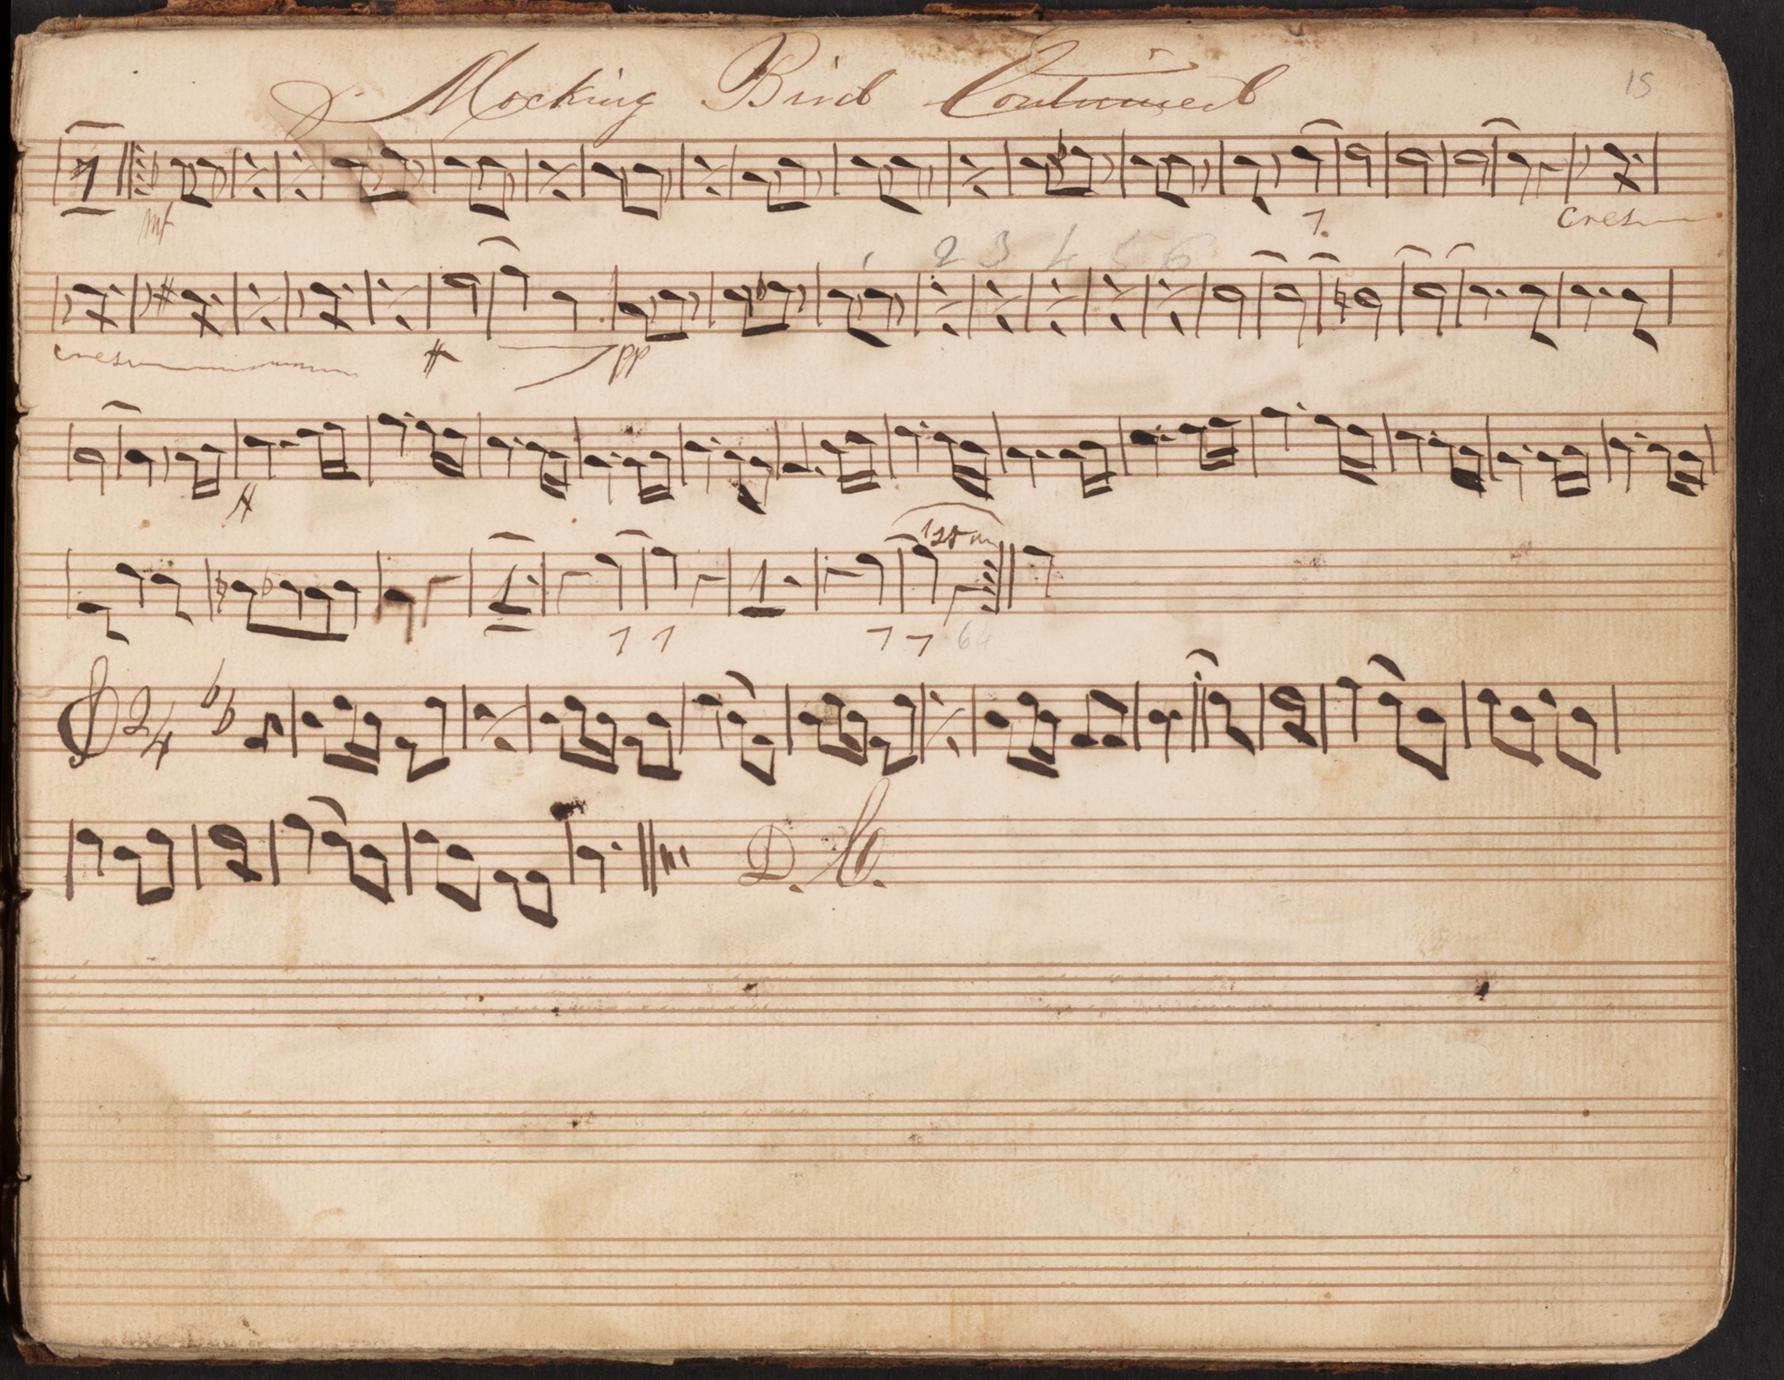 Mocking Bird Continued
15
1
mf
1.
Cres
2 3 4 5 6
cres
pp
1st
7 7 7 7 64
2/4
D.C.